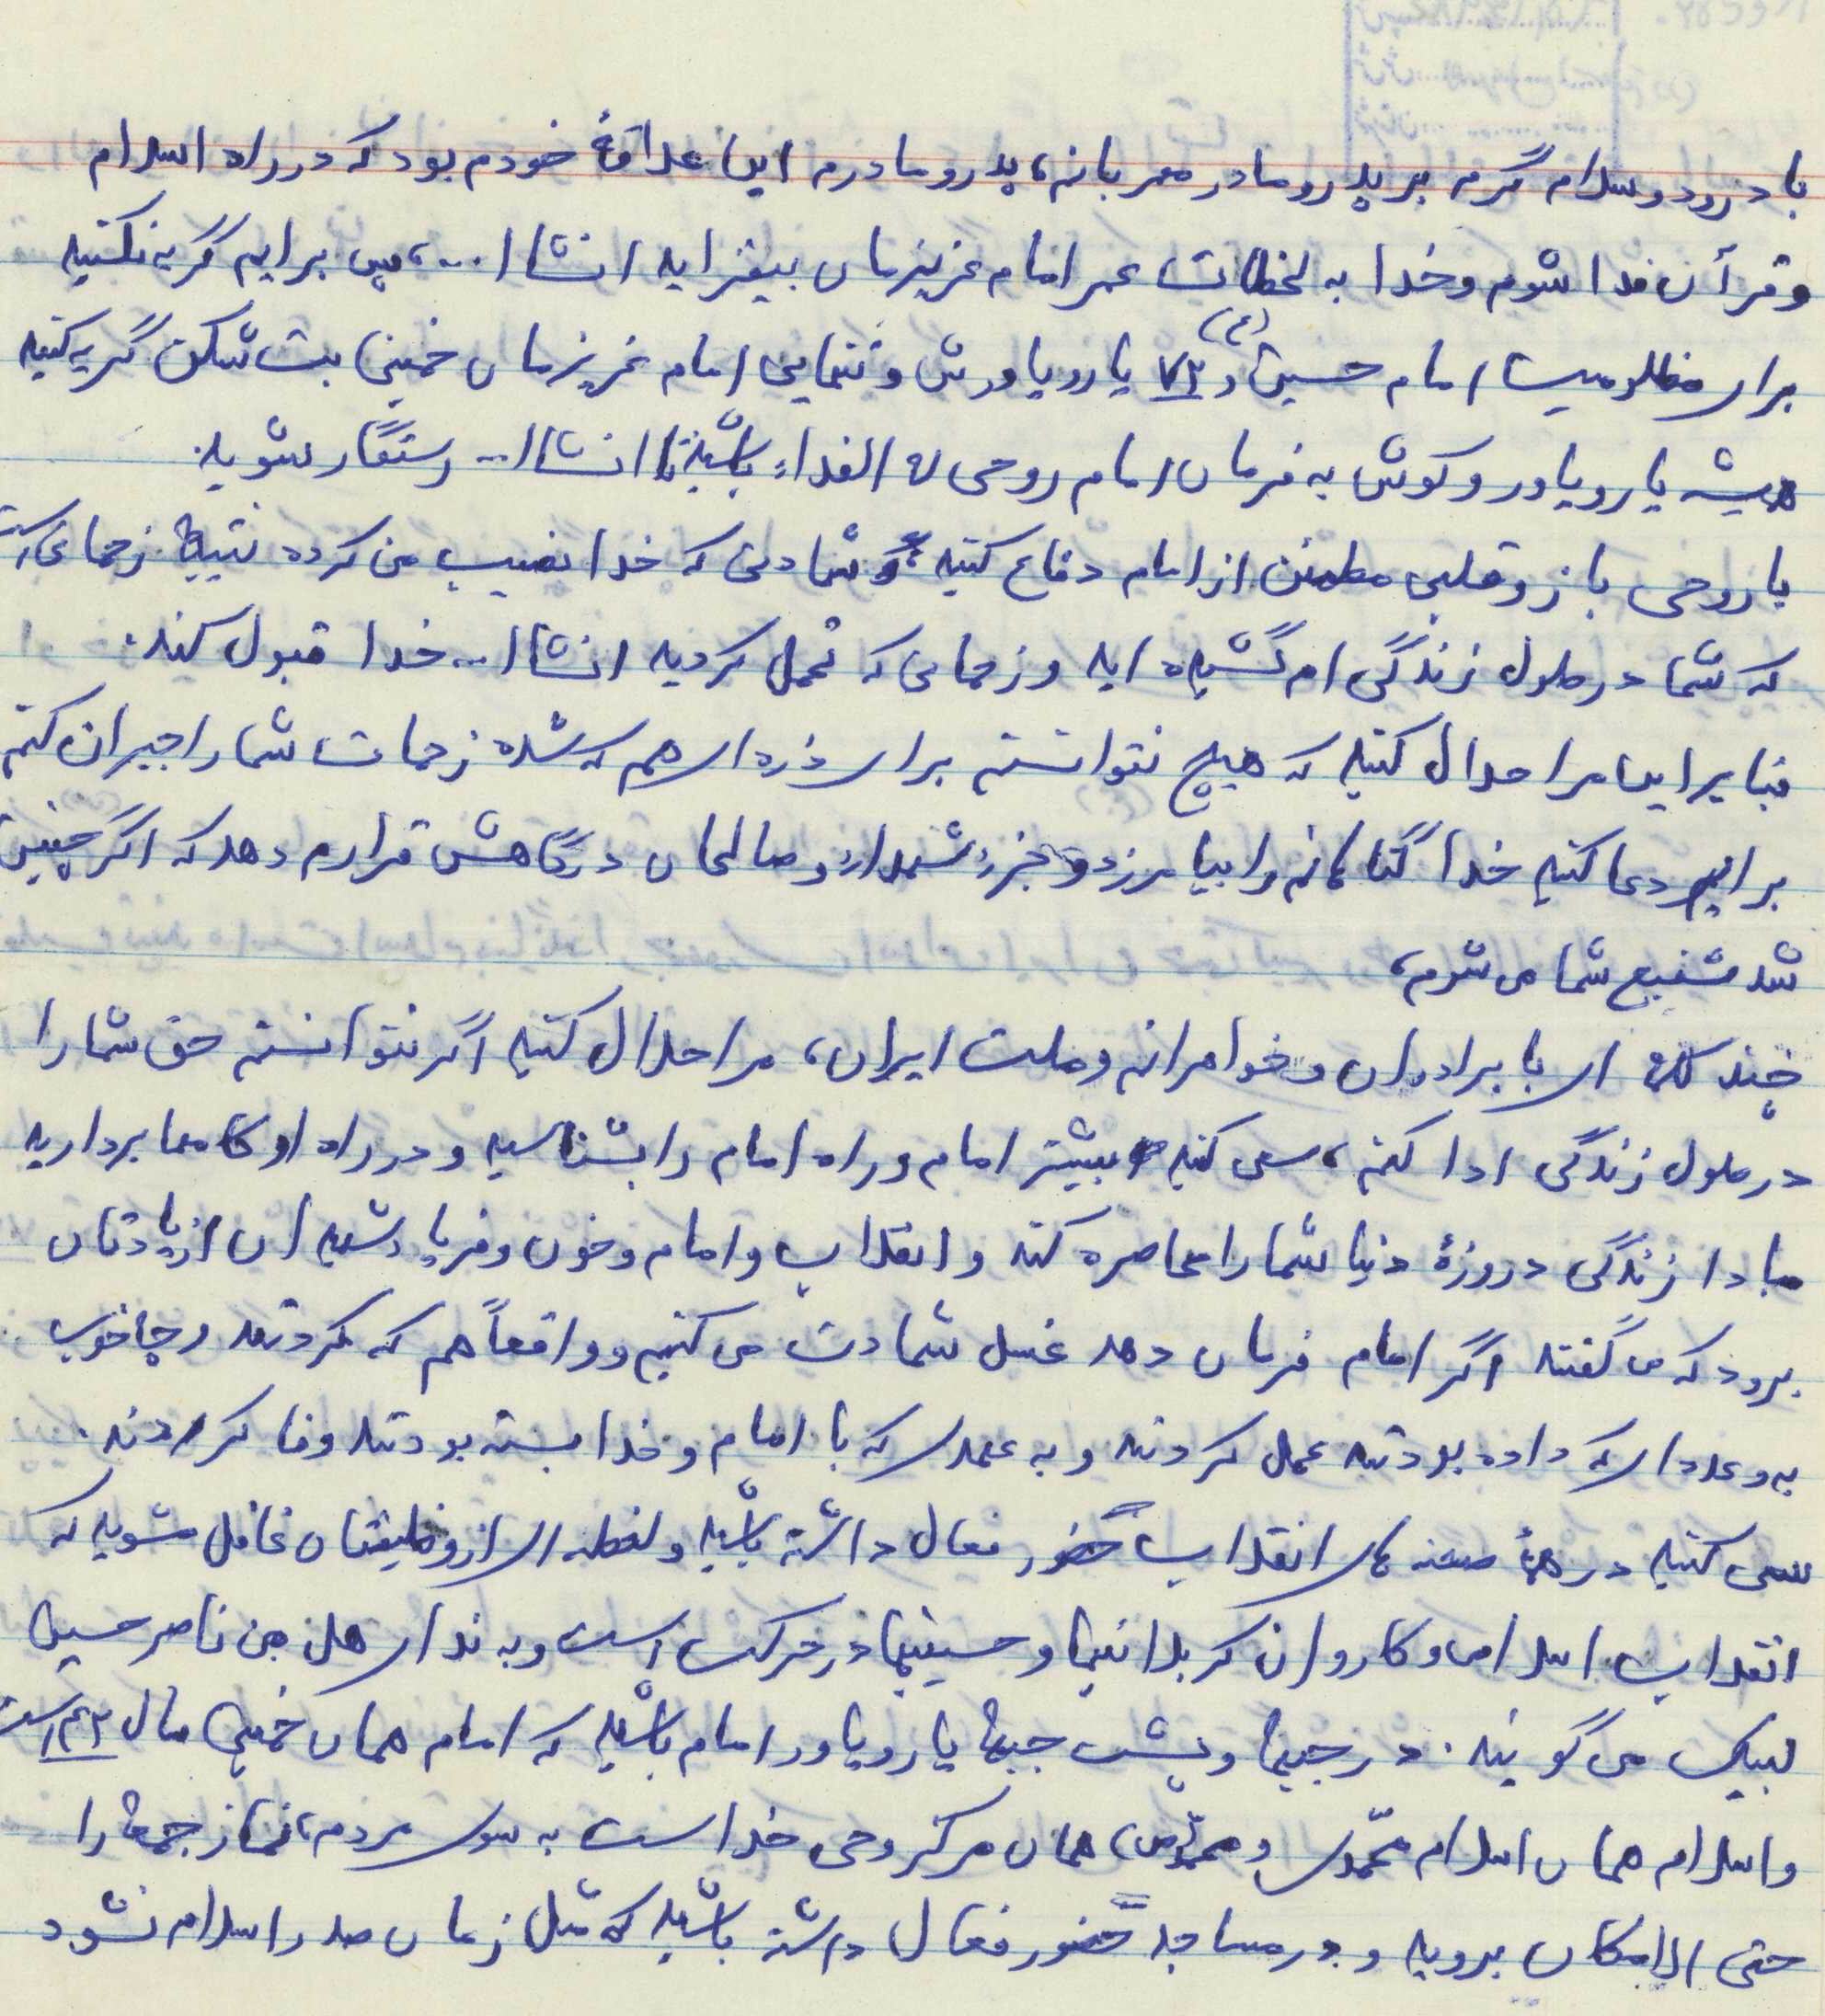 با درود و سلام گرم بر پدر و مادر مهربانم، پدر و مادرم این علاقهٔ خودم بود که در راه اسلام
و قرآن فدا شوم و خدا به لحظات عمر امام عزیزمان بیفزاید انشاا...، پس برایم گریه نکنید
برای مظلومیت امام حسین (ع) و ۷۲ یار و یاورش و تنهایی امام عزیزمان خمینی بت شکن گریه کنید
همیشه یار و یاور و گوش به فرمان امام روحی له الفداء باشید تا انشاا... رستگار شوید.
با روحی باز و قلبی مطمئن از امام دفاع کنید و شهادتی که خدا نصیب من کرده نتیجهٔ زحماتی است
که شما در طول زندگی ام کشیده اید و زحماتی که تحمل کردید انشاا... خدا قبول کند.
بنابراین مرا حلال کنید که هیچ نتوانستم برای ذره ای هم که شده زحمات شما را جبران کنم
برایم دعا کنید خدا گناهانم را بیامرزد و جزء شهداء و صالحان درگاهش قرارم دهد که اگر چنین
شد شفیع شما می شوم،
چند کلمه ای با برادران و خواهرانم و ملت ایران، مرا حلال کنید اگر نتوانستم حق شما را
در طول زندگی ادا کنم، سعی کنید بیشتر امام و راه امام را بشناسید و در راه او گامها بردارید
مبادا زندگی دو روزهٔ دنیا شما را محاصره کند و انقلاب و امام و خون و فریاد شهیدان از یادتان
برود که می گفتند اگر امام فرمان دهد غسل شهادت می کنیم و واقعاً هم که کردند و چه خوب
به وعده ای که داده بودند عمل کردند و به عهدی که با امام و خدا بسته بودند وفا کردند.
سعی کنید در همهٔ صحنه های انقلاب حضور فعال داشته باشید و لحظه ای از وظیفتان غافل مشوید که
انقلاب اسلامی و کاروان کربلائیها و حسینیها در حرکت است و به ندای هل من ناصر حسین
لبیک می گویند. در جبهه و پشت جبهه یار و یاور امام باشید که امام همان خمینی سال ۴۲ است
و اسلام همان اسلام محمدی و محمد (ص) همان مرکز وحی خداست به سوی مردم، نماز جمعه را
حتی الامکان بروید و در مساجد حضور فعال داشته باشید که مثل زمان صدر اسلام نشود